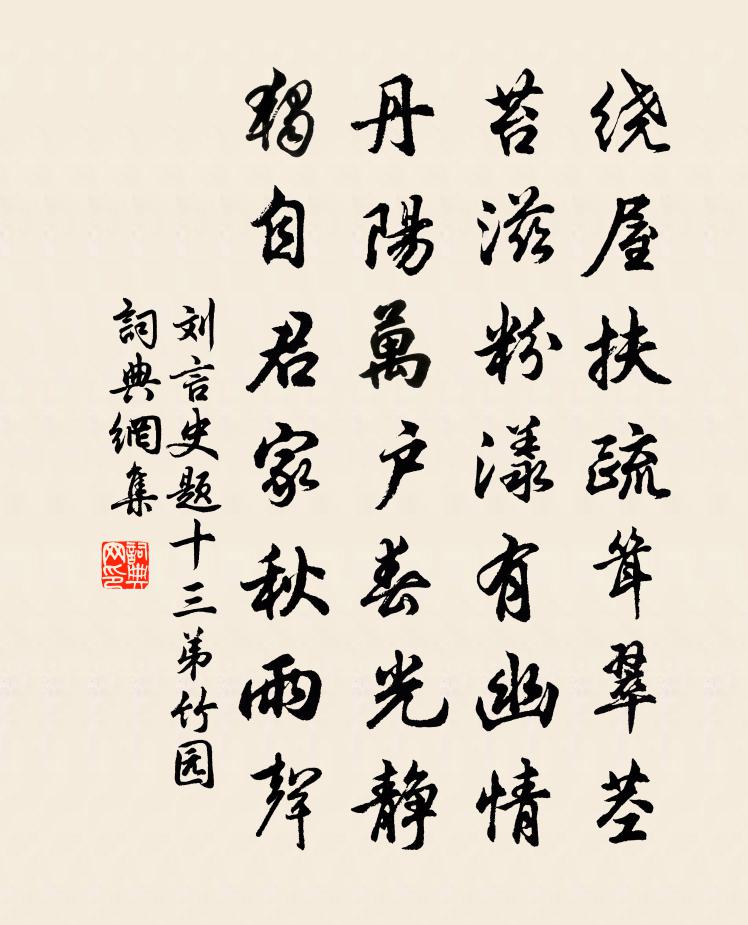 绕屋扶疏耸翠茎
苔滋粉漾有幽情
丹陽萬户春光静
独自君家秋雨聲
刘言史题十三弟竹园
詞典網集
詞典网印